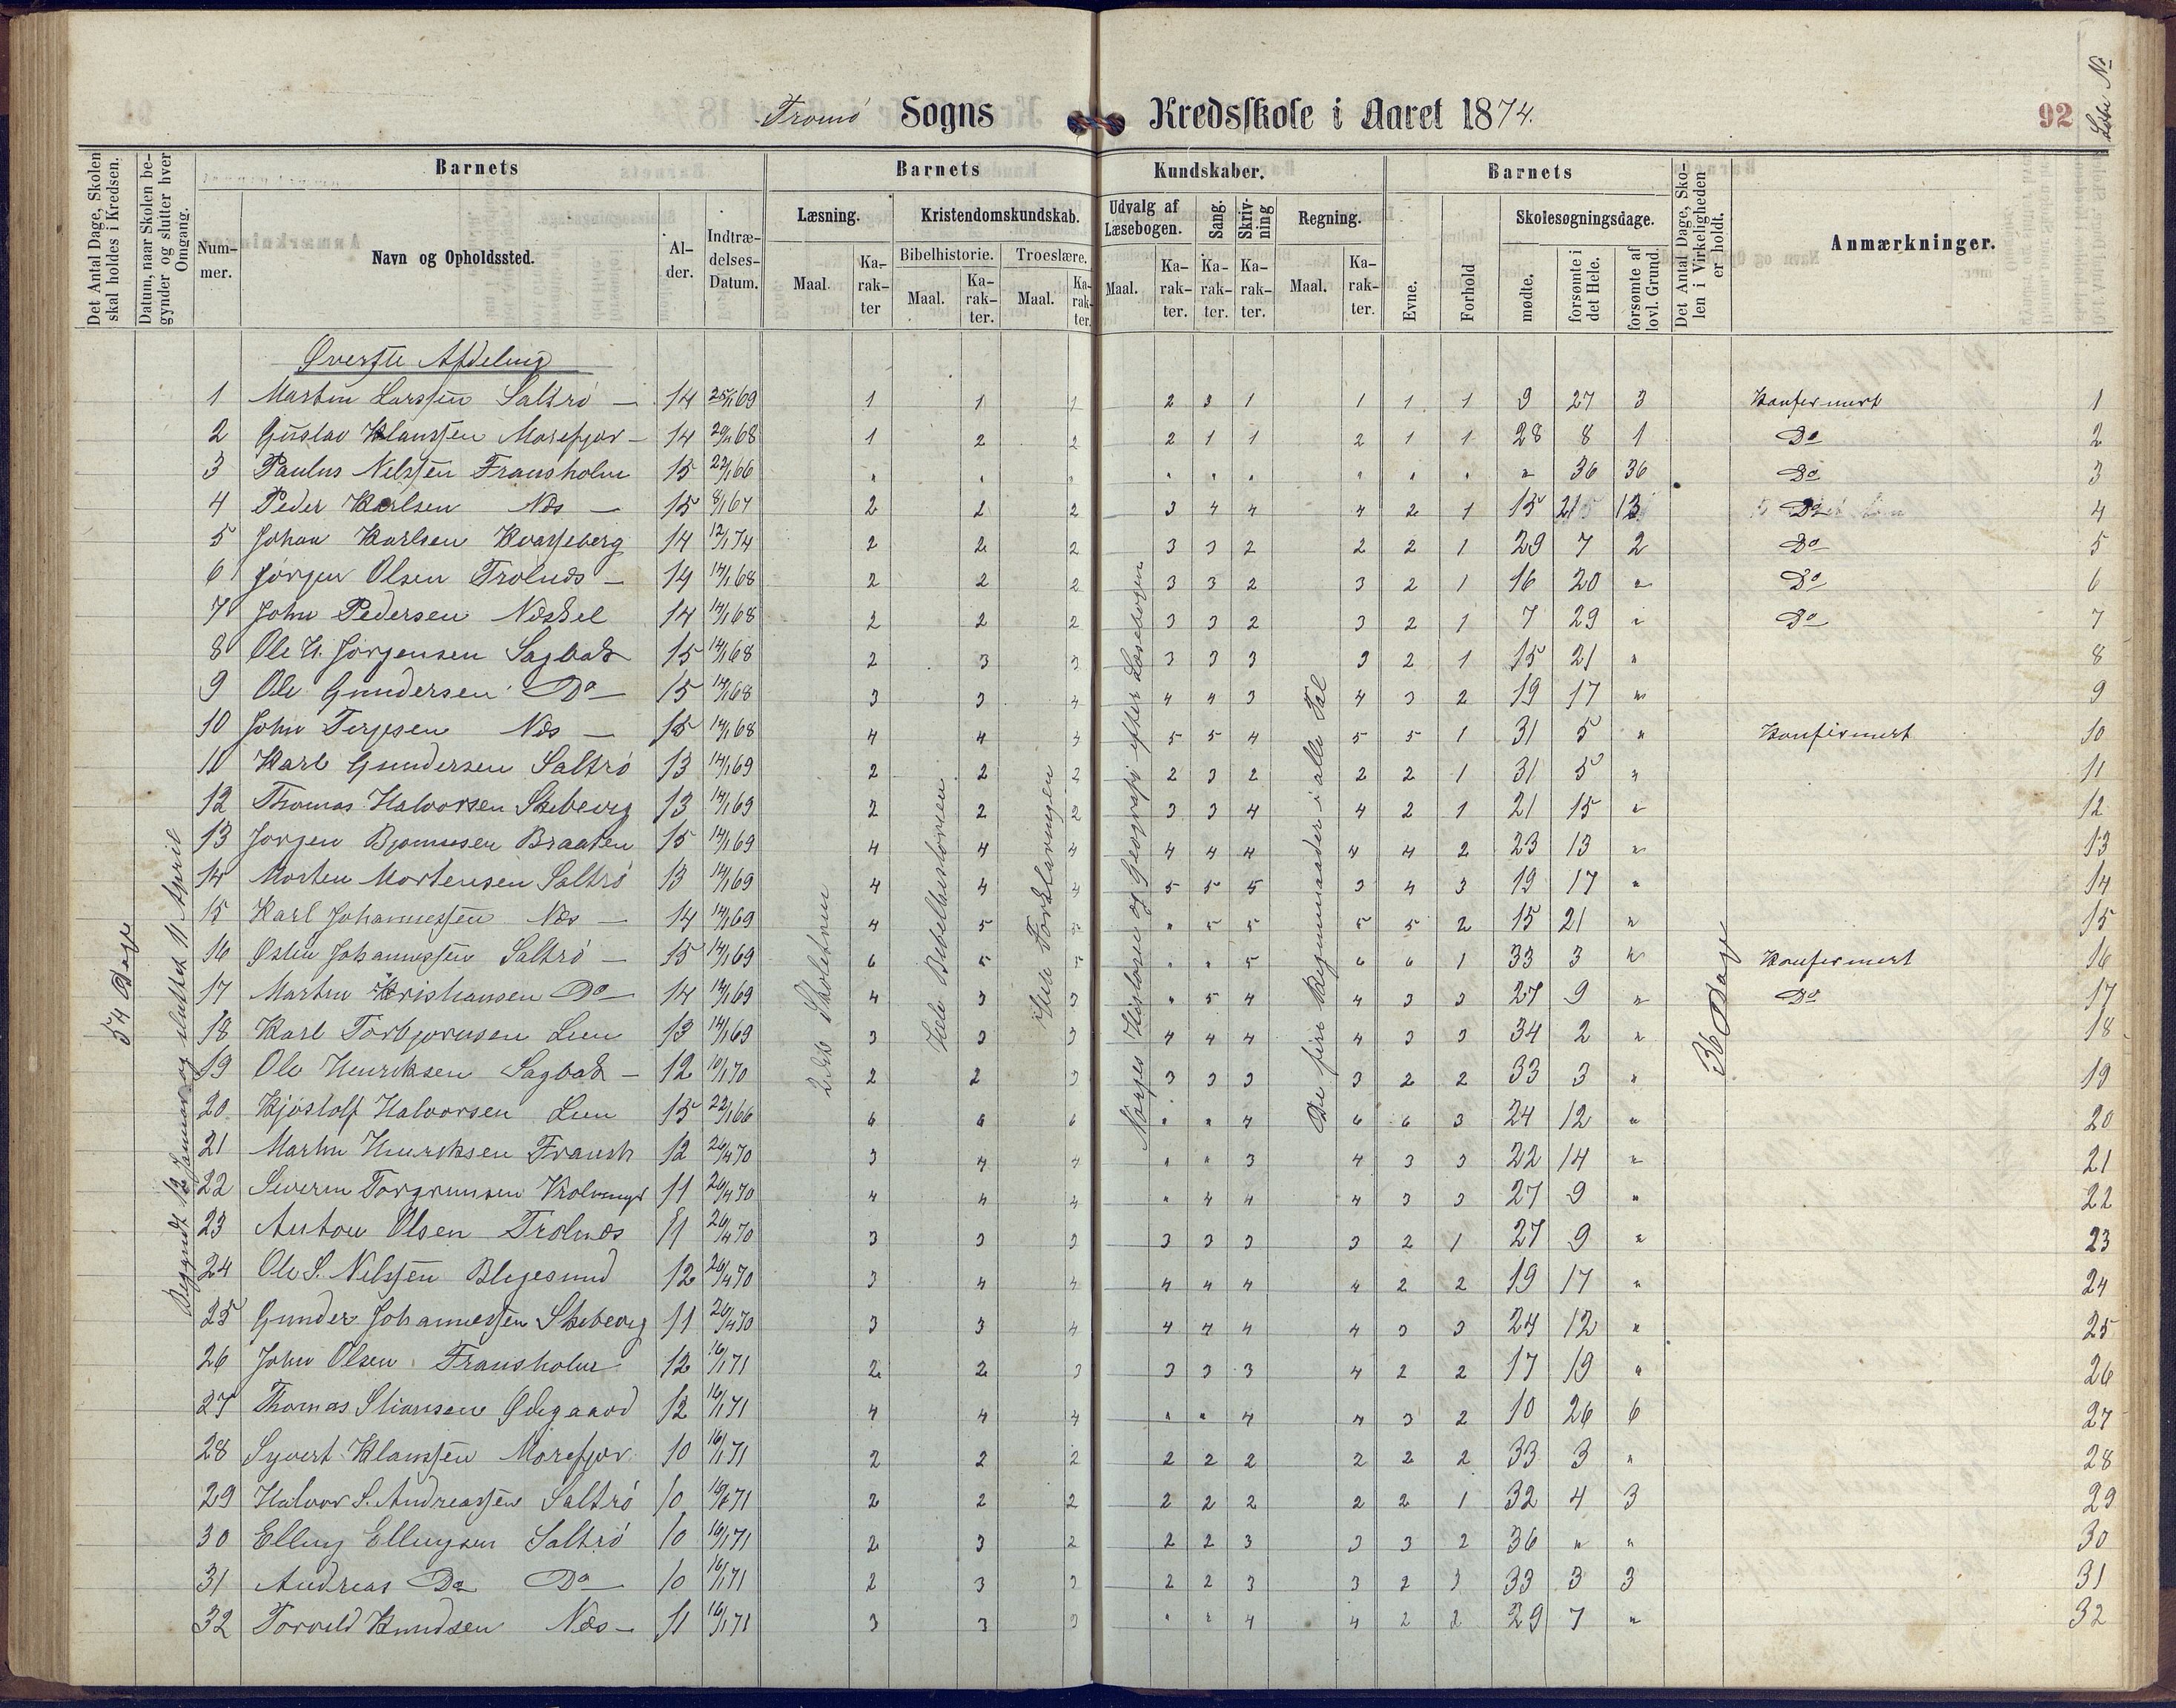 Tromö Sogns Kredsskole i Aaret 1874.
92
Løbe No
Det Antal Dage, Skolen skal holdes i Kredsen.
Datum, naar Skolen begynder og slutter hver Omgang.
Barnets
Nummer.
Navn og Opholdssted.
Alder.
Indtrædelses-Datum.
Barnets Kundskaber.
Læsning.
Maal.
Karakter
Kristendomskundskab.
Bibelhistorie.
Maal.
Karakter.
Troeslære.
Maal.
Karakter.
Udvalg af Læsebogen.
Maal.
Karakter.
Sang.
Karakter.
Skrivning
Karakter.
Regning.
Maal.
Karakter.
Barnets
Evne.
Forhold
Skolesøgningsdage.
mødte.
forsømte i det Hele.
forsømte af lovl. Grund.
Det Antal Dage, Skolen i Virkeligheden er holdt.
Anmærkninger.
54 Dage
Begyndt 12 Januar og sluttet 11 April
Hele Bibelhistorien
Hele Forklaringen
Norges Historie og Geografi efter Læsebogen
De fire Regnemaader i alle Tal
36 Dage
Øverste Afdeling
1 Martin Larssen Saltrö 14 25/1 69 1 1 1 2 3 1 1 1 1 9 27 3 Konfirmert 1
2 Gustav Klaussen Morefjær 14 29/1 68 1 2 2 2 1 1 2 1 1 28 8 1 Do 2
3 Paulus Nilssen Fransholm 15 22/1 66 " " " " " " " " " " 36 36 Do 3
4 Peder Karlsen Næs 15 8/1 67 2 2 2 3 4 4 4 2 1 15 21 13 Do 4
5 Johan Karlsen Kvasseberg 14 12/1 74 2 2 2 3 3 2 2 2 1 29 7 2 Do 5
6 Jörgen Olsen Trolnæs 14 14/1 68 2 2 2 3 3 2 3 2 1 16 20 " Do 6
7 John Pedersen Næskel 14 14/1 68 2 2 2 3 3 2 3 2 1 7 29 " Do 7
8 Ole H. Jörgensen Sagbæk 15 14/1 68 2 3 3 3 3 3 3 2 1 15 21 " 8
9 Ole Gundersen Do 15 14/1 68 3 3 4 4 4 3 4 3 2 19 17 " 9
10 John Terjesen Næs 15 14/1 68 4 4 3 5 5 4 5 5 1 31 5 " Konfirmert 10
11 Karl Gundersen Saltrö 13 14/1 69 2 2 2 2 3 2 2 2 1 31 5 " 11
12 Thomas Halvorsen Skeberg 13 14/1 69 2 2 2 3 3 4 4 2 1 21 15 " 12
13 Jorgen Bjornsen Braaten 15 14/1 69 4 4 4 4 4 4 4 4 2 23 13 " 13
14 Morten Mortensen Saltrö 13 14/1 69 4 4 4 5 5 5 3 4 3 19 17 " 14
15 Karl Johannessen Næs 14 14/1 69 4 5 5 " 5 5 5 5 2 15 21 " 15
16 Østen Johannessen Saltrö 15 14/1 69 6 5 5 " " 5 6 6 1 33 3 " Konfirmert 16
17 Martin Kristiansen Do 14 14/1 69 4 3 3 " 5 4 4 3 3 27 9 " Do 17
18 Karl Torbjornsen Lun 13 14/1 69 3 3 3 4 4 4 4 3 3 34 2 " 18
19 Ole Henriksen Sagbæk 12 10/1 70 2 2 3 3 3 3 3 2 2 33 3 " 19
20 Kjöstolf Halvorsen Lun 15 22/1 66 6 6 6 " " 4 6 6 3 24 12 " 20
21 Martin Henriksen Fransh 12 26/4 70 3 4 4 " " 3 4 3 3 22 14 " 21
22 Severin Torgrimsen 11 26/4 70 4 4 4 " 4 4 4 3 3 27 9 " 22
23 Anton Olsen Trolnæs 11 26/4 70 3 3 3 3 3 3 3 2 1 27 9 " 23
24 Ole S. Nilssen Blegesund 12 26/4 70 3 4 4 4 4 4 4 2 2 19 17 " 24
25 Gunder Johannessen Skeberg 11 26/4 70 3 3 4 4 4 4 4 3 3 24 12 " 25
26 John Olsen Fransholm 12 16/1 71 2 2 3 3 3 3 4 2 2 17 19 " 26
27 Thomas Stiansen Ødegaard 12 16/1 71 4 4 4 " " 4 4 3 2 10 26 6 27
28 Syvert Klaussen Morefjær 10 16/1 71 2 2 2 2 2 2 2 2 2 33 3 " 28
29 Halvor S. Andreassen Saltrö 10 16/1 71 2 2 2 2 2 2 2 2 1 32 4 3 29
30 Elling Ellingsen Saltrö 10 16/1 71 2 3 2 2 2 3 3 3 2 36 " " 30
31 Andreas Do Do 10 16/1 71 2 3 3 2 2 3 3 2 3 33 3 3 31
32 Torvald Knudsen Næs 11 16/1 71 3 3 3 " " 4 4 2 2 29 7 " 32